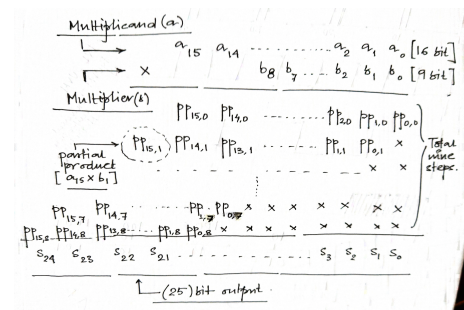 Multiplicand (a)
a15 a14 ........ a2 a1 a0 [16 bit]
× b8 b7 ..... b2 b1 b0 [9 bit]
Multiplier(b)
PP15,0 PP14,0 ....... PP2,0 PP1,0 PP0,0
PP15,1 PP14,1 PP13,1 ....... PP1,1 PP0,1 ×
Total nine steps.
partial product [a15 × b1]
× ×
PP15,7 PP14,7 ....... PP1,7 PP0,7 × × × × × ×
PP15,8 PP14,8 PP13,8 ..... PP1,8 PP0,8 × × × × × ×
S24 S23 S22 S21 ........ S3 S2 S1 S0
(25) bit output.